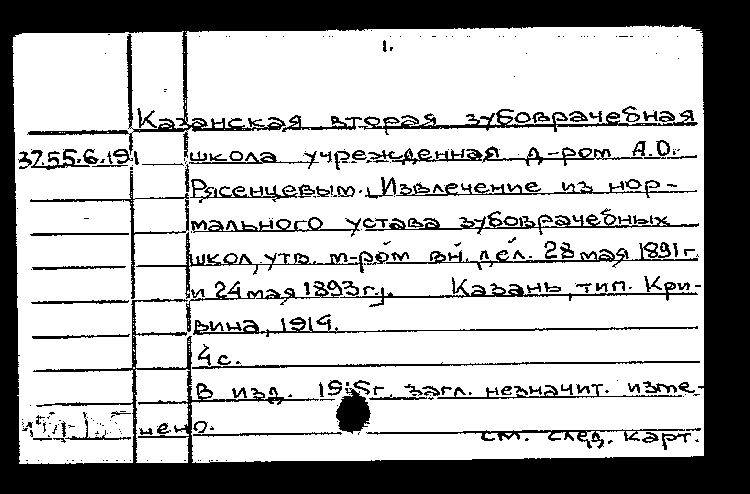 1.
Казанская вторая зубоврачебная
37.55.6.19 школа учрежденная д-ром А.О.
Рясенцевым. [Извлечение из нор-
мального устава зубоврачебных
школ, утв. м-ром вн. дел. 28 мая 1891 г.
и 24 мая 1893 г.]. Казань, тип. Кри-
вина, 1914.
4 с.
В изд. г. загл. незначит. изме-
нено.
см. след. карт.